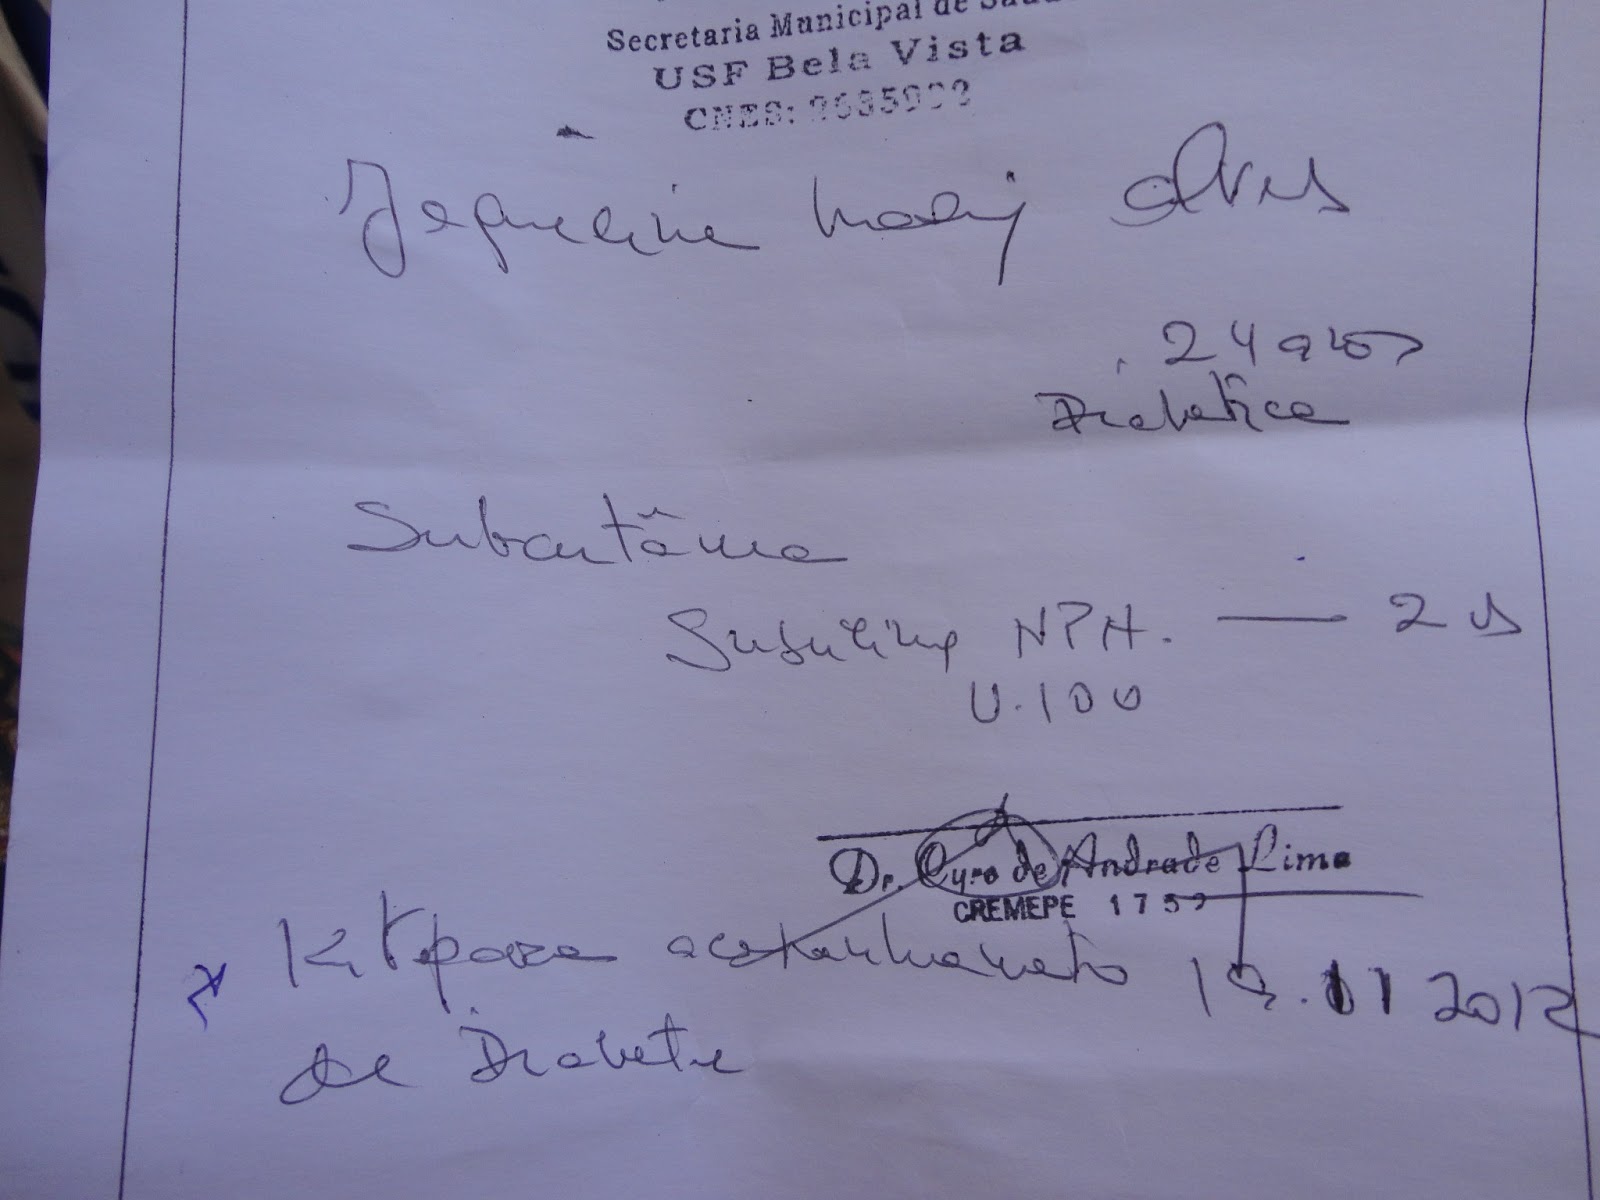 Secretaria Municipal de Saúd
USF Bela Vista
CNES:
Jaqueline Alves
24 anos
Diabética
Subcutânea
Insulina NPH. — 2
U.100
Dr. Cyro de Andrade Lima
CREMEPE 1759
Kit para acompanhamento
19.11 2012
de Diabete